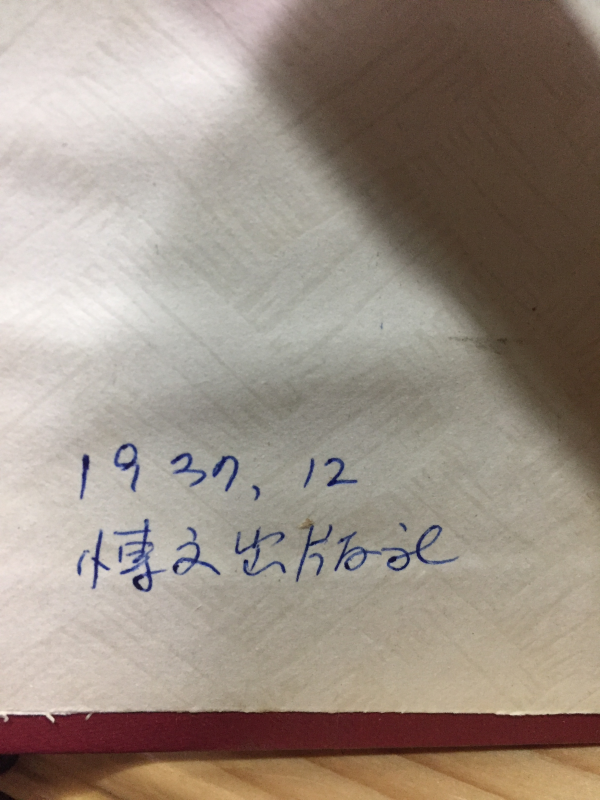 1937, 12
博文出版社